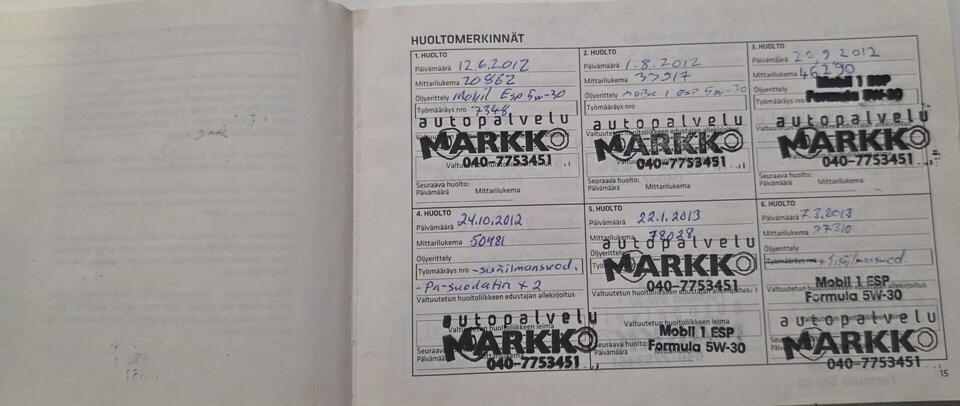 HUOLTOMERKINNÄT
1. HUOLTO
Päivämäärä 12.6.2012
Mittarilukema 20862
Öljyerittely Mobil Esp 5w-30
Työmääräys nro 7348
autopalvelu
MARKKO
040-7753451
Seuraava huolto:
Päivämäärä Mittarilukema
2. HUOLTO
Päivämäärä 1.8.2012
Mittarilukema 33917
Öljyerittely Mobil 1 ESP 5W-30
Työmääräys nro
autopalvelu
Valtuutetun huoltoliikkeen edustajan allekirjoitus
MARKKO
040-7753451
Seuraava huolto:
Päivämäärä Mittarilukema
3. HUOLTO
Päivämäärä 20.9.2012
Mittarilukema 46290
Mobil 1 ESP
Öljyerittely
Formula 5W-30
Työmääräys nro
autopalvelu
MARKKO
040-7753451
Seuraava huolto:
Päivämäärä Mittarilukema
4. HUOLTO
Päivämäärä 24.10.2012
Mittarilukema 50481
Öljyerittely
Työmääräys nro -sisäilmansuod.
-Pa-suodatin x 2
Valtuutetun huoltoliikkeen edustajan allekirjoitus
autopalvelu
Valtuutetun huoltoliikkeen leima
MARKKO
Seuraava huolto:
Päivämäärä
040-7753451
5. HUOLTO
Päivämäärä 22.1.2013
Mittarilukema 78028
autopalvelu
Öljyerittely
MARKKO
Työmääräys nro
040-7753451
Valtuutetun huoltoliikkeen edustajan allekirjoitus
Valtuutetun huoltoliikkeen leima
Mobil 1 ESP
Seuraava huolto:
Formula 5W-30
Päivämäärä
6. HUOLTO
Päivämäärä 7.3.2013
Mittarilukema 97310
Öljyerittely
Työmääräys nro + Sisäilmansuod.
Mobil 1 ESP
Valtuutetun huoltoliikkeen edustajan allekirjoitus
Formula 5W-30
autopalvelu
MARKKO
Seuraava huolto:
Päivämäärä
040-7753451
15